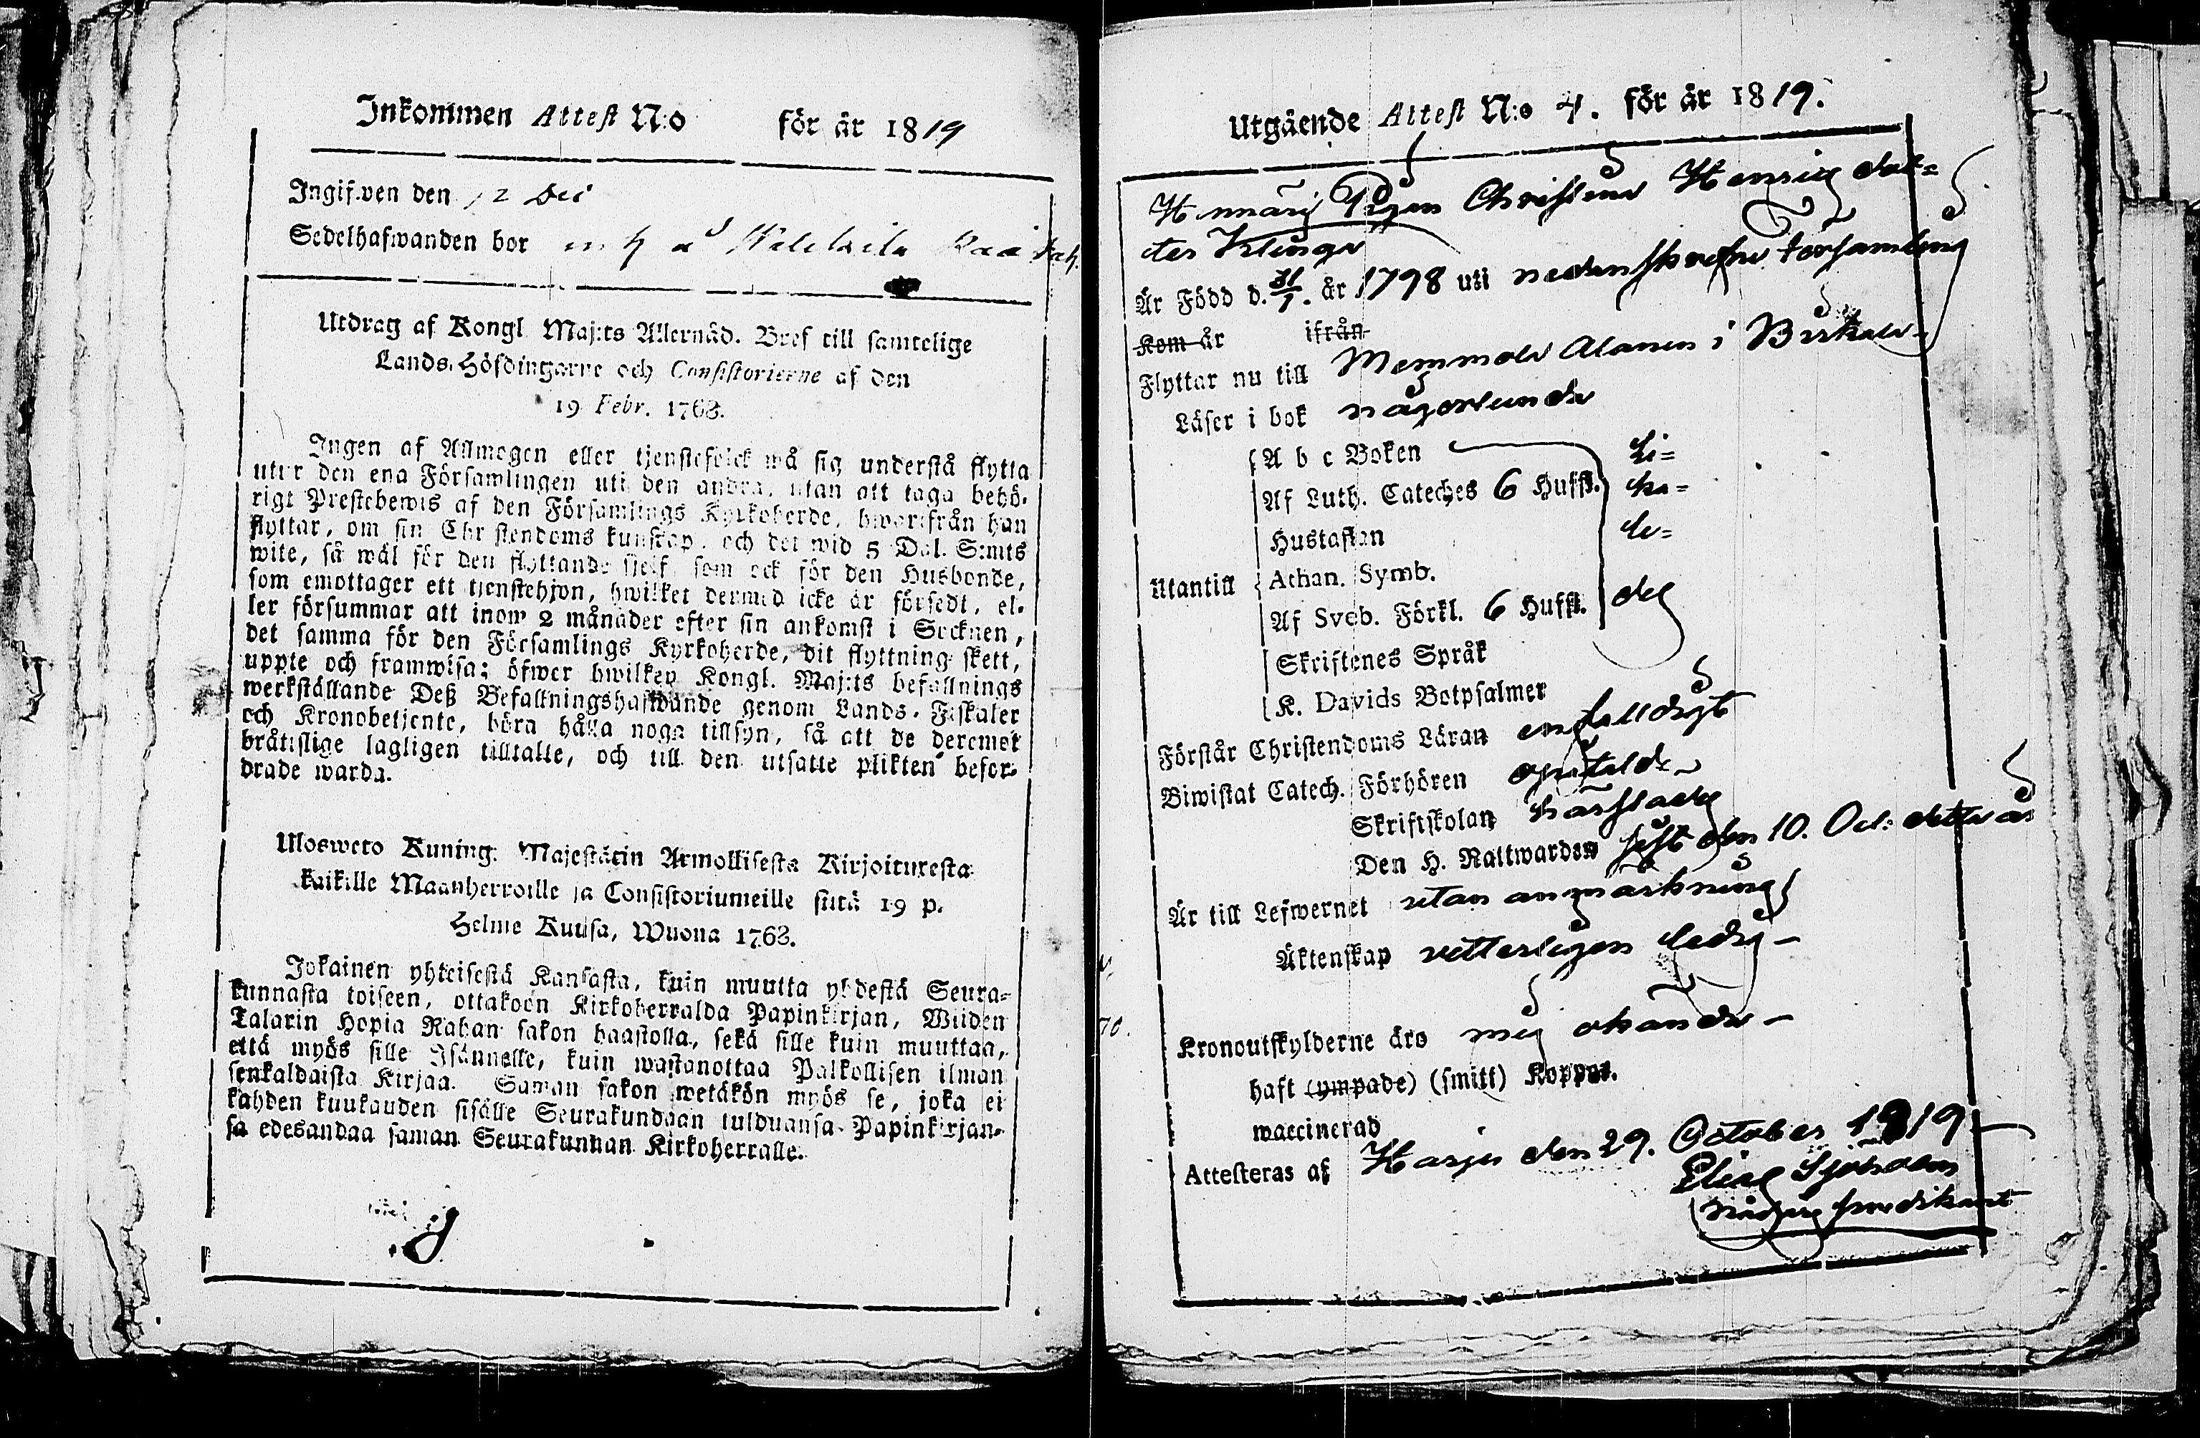 Inkommen Attest N:o för år 1819
Ingifwen den 12 Dec
Sedelhafwanden bor
Utdrag af Kongl. Maj:ts Allernåd. Bref till samtelige
Lands-Höfdingarne och Consistorierne af den
19 Febr. 1763.
Ingen af Allmogen eller tjenstefolck må sig understå flytta
utur den ena Församlingen uti den andra, utan att taga behö-
rigt Prestebewis af den Församlings Kyrkoherde, hwarifrån han
flyttar, om sin Christendoms kunskap, och det wid 5 Dal. S:mts
wite, så wäl för den flyttande sjelf, som ock för den Husbonde,
som emottager ett tjenstehjon, hwilket dermed icke är försedt, el-
ler försummar att inom 2 månader efter sin ankomst i Socknen,
det samma för den Församlings Kyrkoherde, dit flyttning skett,
uppte och framwisa; öfwer hwilken Kongl. Maj:ts befallnings
werkställande Deß Befallningshafwande genom Lands-Fiskaler
och Kronobetjente, böra hålla noga tillsyn, så att de deremot
bråtislige lagligen tilltalte, och till den utsatte plikten befor-
drade warda.
Ulosweto Kuning. Majestätin Armollisesta Kirjoituxesta
kaikille Maanherroille ja Consistoriumeille siitä 19 p.
Helme Kuusa, Wuona 1763.
Jokainen yhteisestä Kansasta, kuin muutta yhdestä Seura-
kunnasta toiseen, ottakoon Kirkoherralda Papinkirjan, Wiiden
Talarin Hopia Rahan sakon haastolla, sekä sille kuin muuttaa,
että myös sille Isännelle, kuin wastanottaa Palkollisen ilman
senkaldaista Kirjaa. Saman sakon wetäkön myös se, joka ei
kahden kuukauden sisälle Seurakundaan tulduansa Papinkirjan-
sa edesandaa saman Seurakunnan Kirkoherralle.
Utgående Attest N:o 4. för år 1819.
Pigan Christina Henrics dot-
ter Klinga
Är Född d. 31/7. år 1798 uti nedanskrefne Församling
Kom år ifrån
Flyttar nu till Memmola Alanen i Birkala
Läser i bok någorlunda
A b c Boken Li-
Af Luth. Cateches 6 Huffst. ka-
Hustaflan le-
Utantill Athan. Symb.
Af Sveb. Förkl. 6 Huffst. des
Skriftenes Språk
K. Davids Botpsalmer
Förstår Christendoms Läran enfalldigt
Biwistat Catech. Förhören
Skriftskolan
Den H. Nattwarden sist den 10. Oct: detta år
Är till Lefwernet utan anmärkning
Äktenskap vetterligen ledig
Kronoutskylderne äro mig okände
haft (ympade) (smitt) Koppor.
waccinerad
Attesteras af Harju den 29. October 1819
Elias Sjöholm
predikant